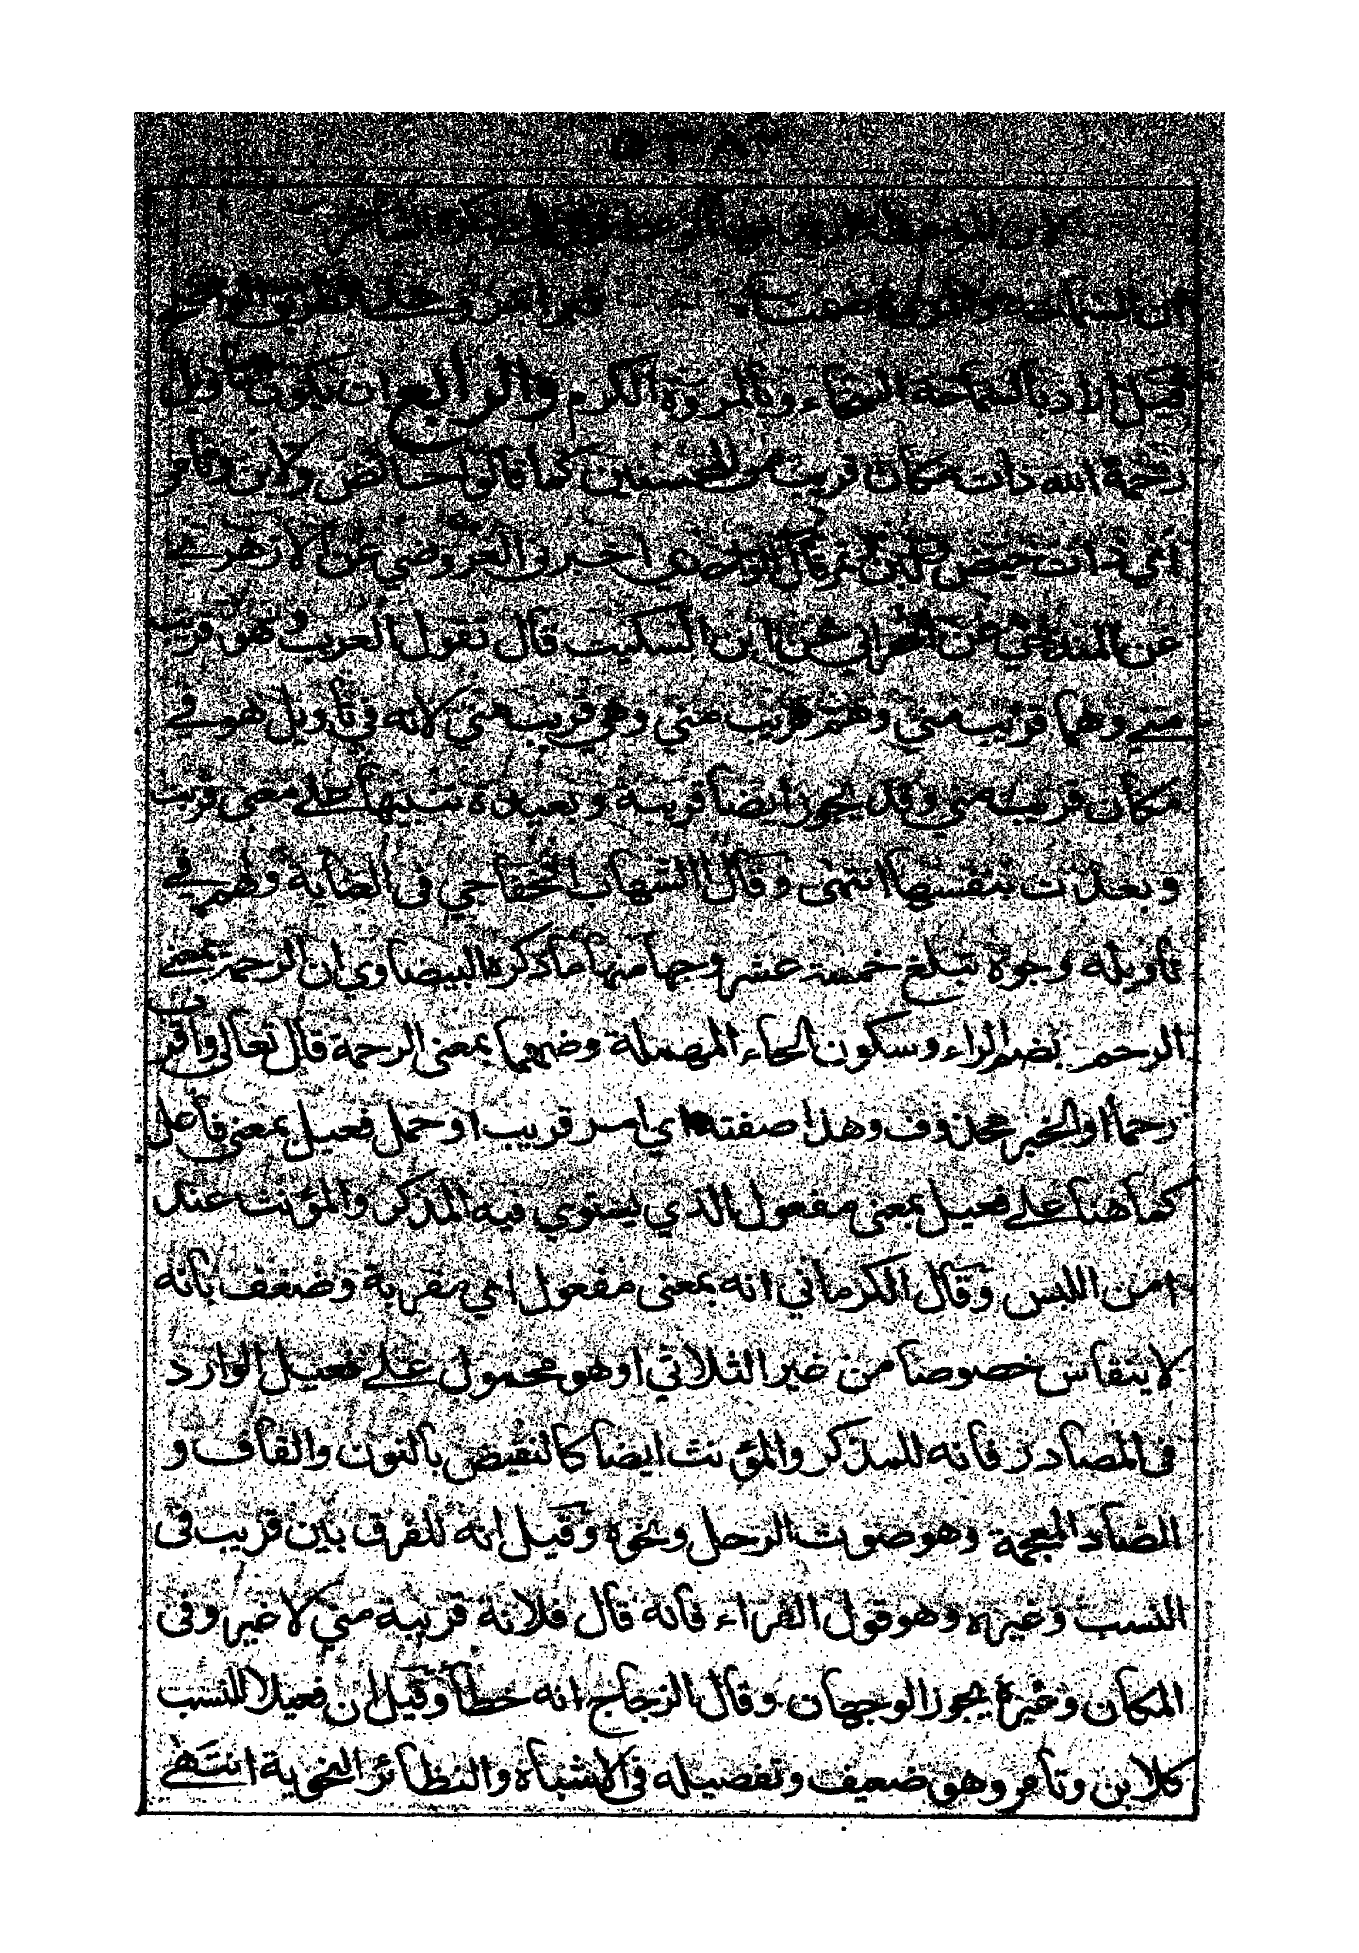 قيل اراد بالسماحة السخاء وبالمروة الكرم والرابع ان يكون تاويل
رحمة الله ذات مكان قريب من المحسنين كما قالوا حائض ولابن وتامر
اى ذات حيض ولبن وتمر قال الواحدى اخبرنى العروضي عن الازهرے
عن المنذري عن الحراني عن ابن السكيت قال تقول العرب هو قريب
منے وهما قريب منى وهم قريب منى وهى قريب منى لانه فى تاويل هو فے
مكان قريب منى وقد يجوز ايضا قريبة وبعيدة تنبيها علے معنى قربت
وبعدت بنفسها انتهى وقال الشهاب الخفاجي فى العناية وهم فے
تاويله وجوه تبلغ خمسة عشر وجها منها ما ذكره البيضاوى ان الرحم بمعنے
الرحم بضم الراء وسكون الحاء المهملة وضمها بمعنى الرحمة قال تعالى واقرب
رحما او الخبر محذوف وهذا صفته اى امر قريب او حمل فعيل بمعنى فاعل
كما هنا علے فعيل بمعنى مفعول الذي يستوي فيه المذكر والمؤنث عند
امن اللبس وقال الكرماني انه بمعنى مفعول اي مقربة وضعف بانه
لا ينقاس خصوصا من غير الثلاثي او هو محمول علے فعيل الوارد
فى المصادر فانه للمذكر والمؤنث ايضا كالنقيض بالنون والقاف و
الضاد المعجمة وهو صوت الرحل ونحوه وقيل انه للفرق بين قريب فى
النسب وغيره وهو قول الفراء فانه قال فلانة قريبة منى لا غير وفى
المكان وغيره يجوز الوجهان وقال الزجاج انه خطأ وقيل ان فعيلا للنسب
كلابن وتامر وهو ضعيف وتفصيله فى الاشباه والنظائر النحوية انتهے